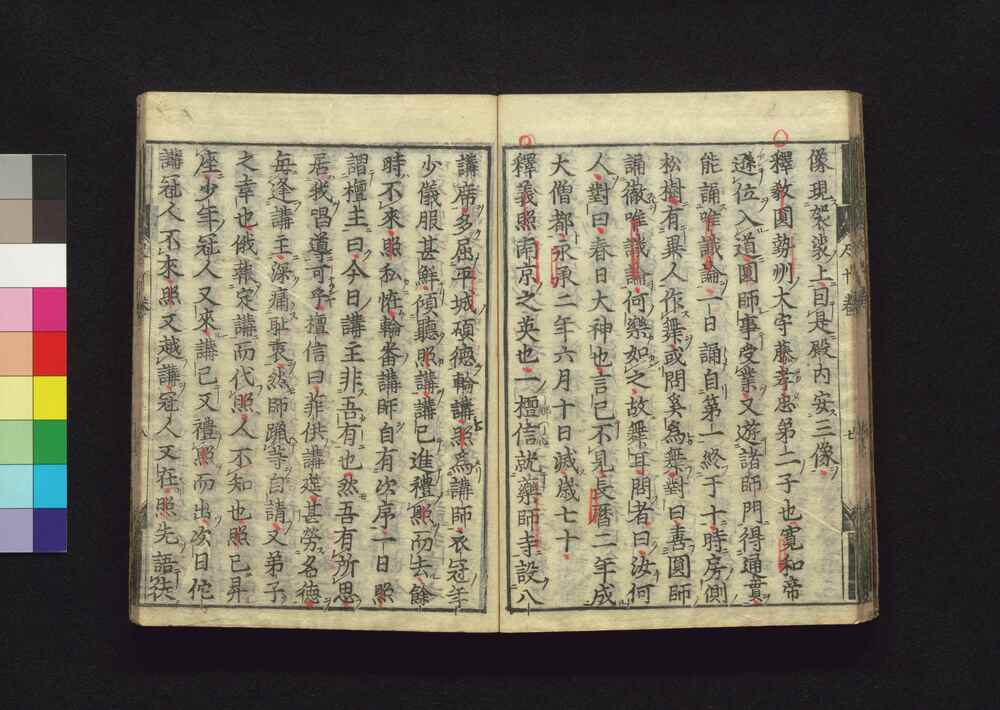 像現袈裟上自是殿内安三像
釋教圓勢州太守藤孝忠第二子也寛和帝
遜位入道圓師事受業又遊諸師門得通貫
能誦唯識論一日誦自第一終于十時房側
松樹有異人作舞或問奚爲舞對曰善圓師
誦徹唯識論何樂如之故舞耳問者曰汝何
人對曰春日大神也言已不見長曆二年成
大僧都永承二年六月十日滅歳七十
釋義照南京之英也一檀信就藥師寺設八
講席多屈平城碩德輪講照爲講師衣冠年
少儀服甚鮮傾聽照講講已進禮照而去餘
時不來照私恠輪番講師自有次序一日照
謂檀主曰今日講主非吾有也然吾有所思
居我唱導可乎檀信曰菲供講筵甚勞名德
毎逢講主深痛耻衷然師踊等自請又弟子
之幸也俄葬定講而代照人不知也照已昇
座少年冠人又來講已又禮照而出次日佗
講冠人不來照又越講冠人又在照先語